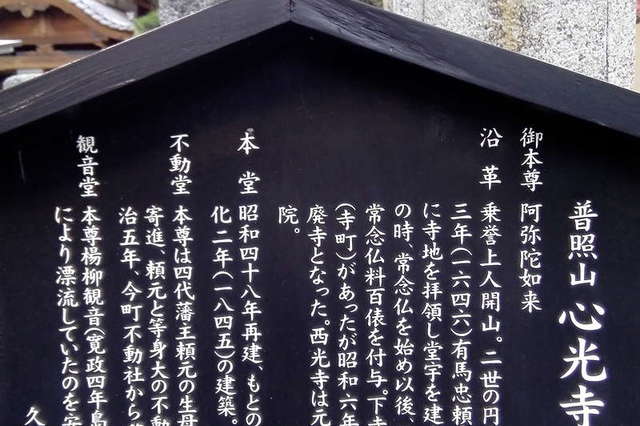 普照山 心光寺
御本尊 阿弥陀如来
沿革 乗誉上人開山。二世の円
三年(一六四六)有馬忠頼
に寺地を拝領し堂宇を建
の時、常念仏を始め以後、
常念仏料百俵を付与。下寺
(寺町)があったが昭和六年
廃寺となった。西光寺は元
院。
本堂 昭和四十八年再建、もとの
化二年(一八四五)の建築。
不動堂 本尊は四代藩主頼元の生母
寄進、頼元と等身大の不動
治五年、今町不動社から
観音堂 本尊楊柳観音(寛政四年島
により漂流していたのを安
久